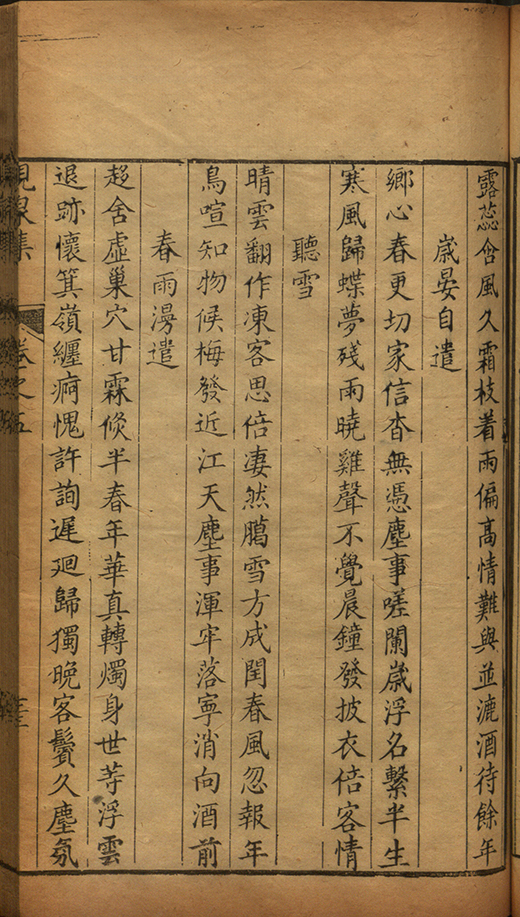 露蕊含風久霜枝着雨偏高情難與並漉酒待餘年
歲晏自遣
鄉心春更切家信杳無憑塵事嗟闌歲浮名繫半生
寒風歸蝶夢殘雨曉雞聲不覺晨鐘發披衣倍客情
聽雪
晴雲翻作凍客思倍凄然臈雪方成閏春風忽報年
鳥喧知物候梅發近江天塵事渾牢落寧消向酒前
春雨漫遣
超舍虛巢穴甘霖倐半春年華真轉燭身世等浮雲
退跡懷箕嶺纏痾愧許詢遲廻歸獨晚客鬢久塵氛
集
卷之五